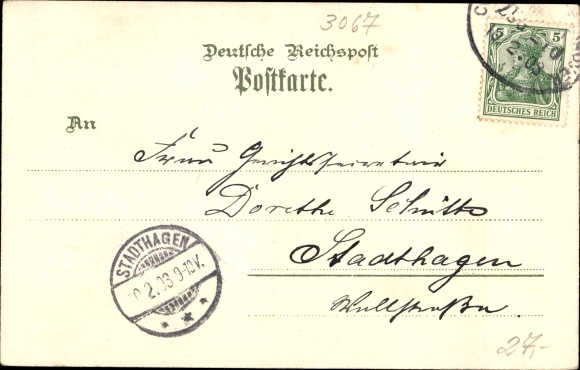 3067
Deutsche Reichspost
Postkarte.
5 5
DEUTSCHES REICH
2.03
An
Frau Gerichtssecretair
Dorethe Schütte
Stadthagen
Wallstraße
STADTHAGEN
2.03 9-10V.
27,-